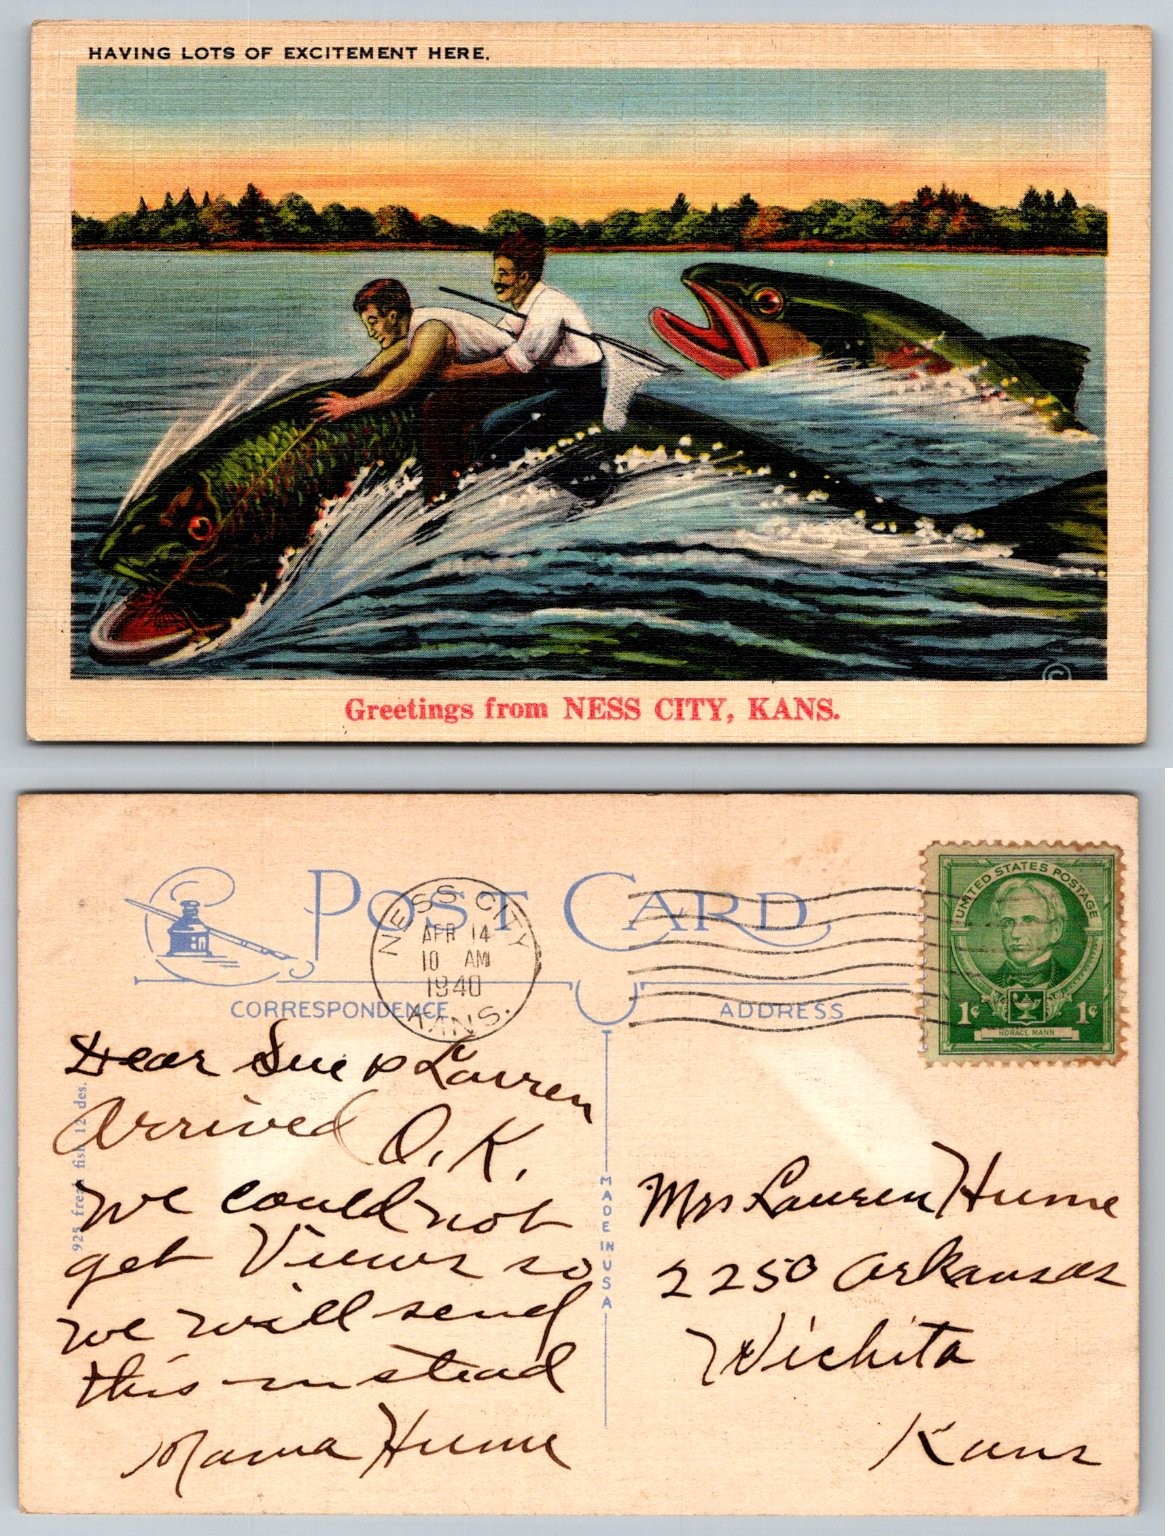 HAVING LOTS OF EXCITEMENT HERE.
©
Greetings from NESS CITY, KANS.
POST CARD
NESS CITY
APR 14
10 AM
1940
KANS.
UNITED STATES POSTAGE
1¢ 1¢
HORACE MANN
CORRESPONDENCE
ADDRESS
Dear Sue & Lauren
Arrived O.K.
we could not
get Views so
we will send
this instead
Mama Hume
925 fresh fish 12 des.
MADE IN USA
Mrs Lauren Hume
2250 Arkansas
Wichita
Kans